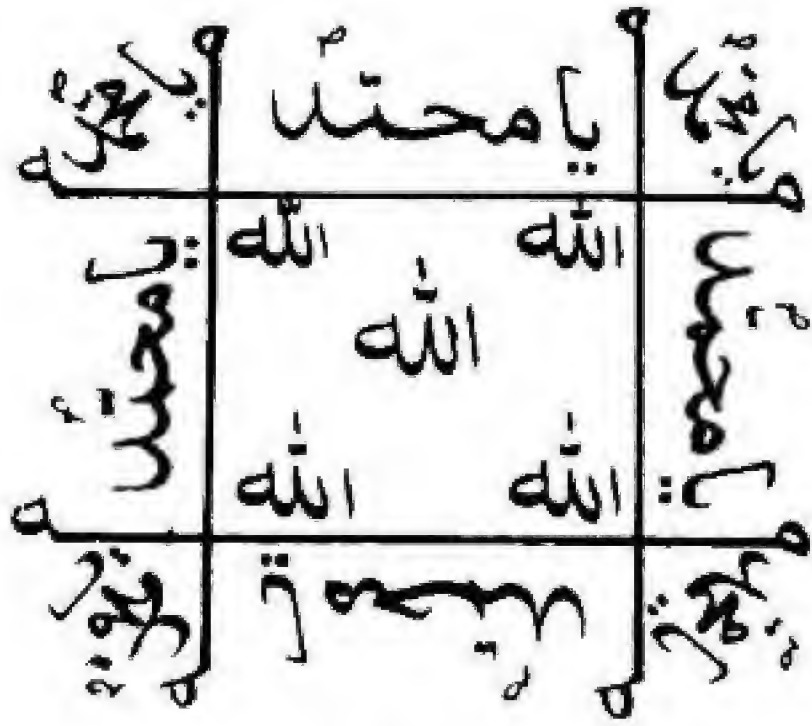 يا محمد
يا محمد
يا محمد
يا محمد
الله
الله
يا محمد
الله
الله
الله
يا محمد
يا محمد
يا محمد